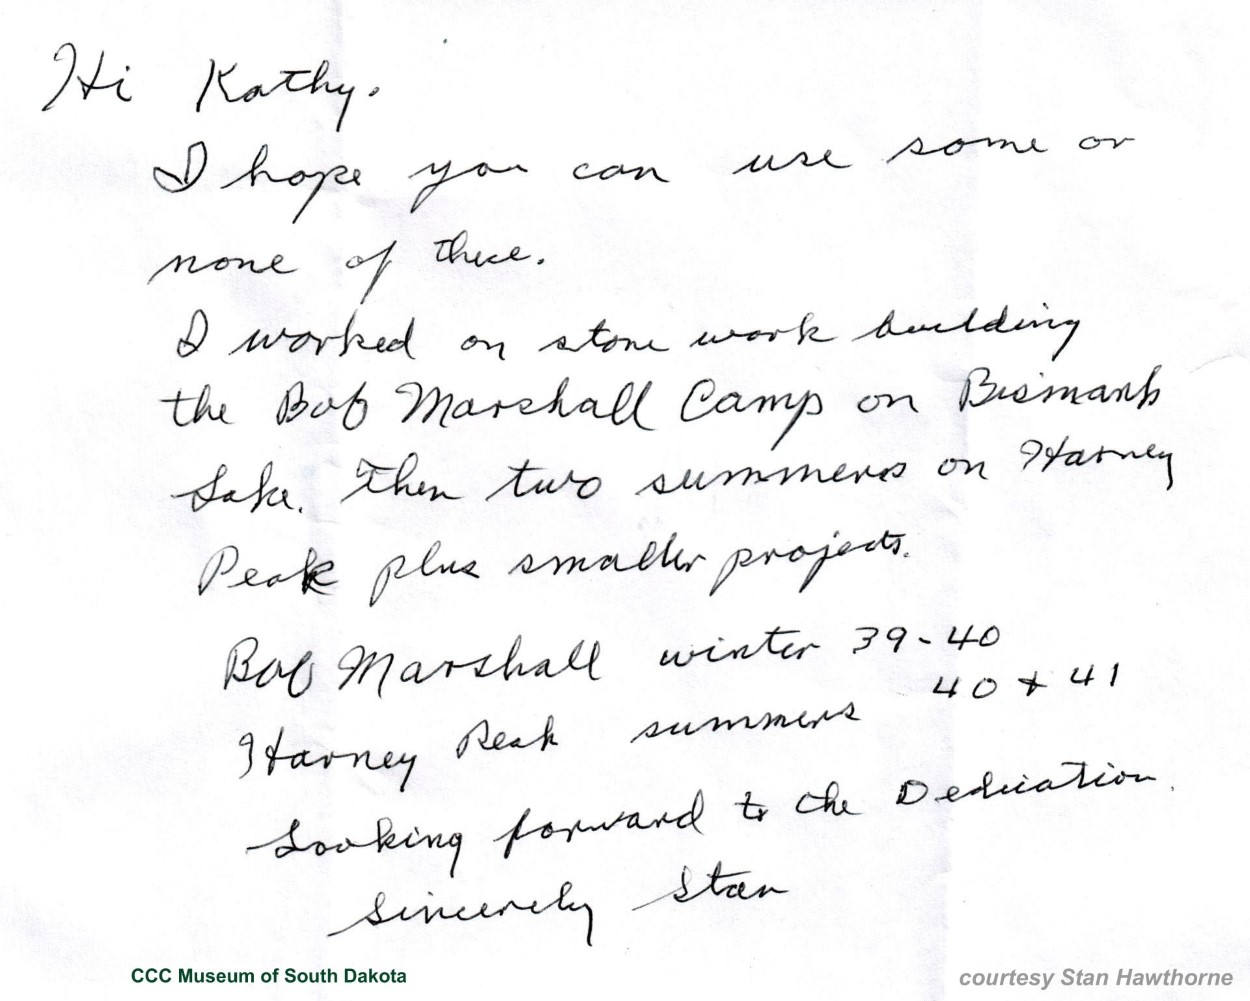 Hi Kathy.
I hope you can use some or
none of these.
I worked on stone work building
the Bob Marshall Camp on Bismark
Lake. Then two summers on Harney
Peak plus smaller projects.
Bob Marshall winter 39-40
Harney Peak summers 40 + 41
Looking forward to the Dedication.
Sincerely Stan
CCC Museum of South Dakota
courtesy Stan Hawthorne